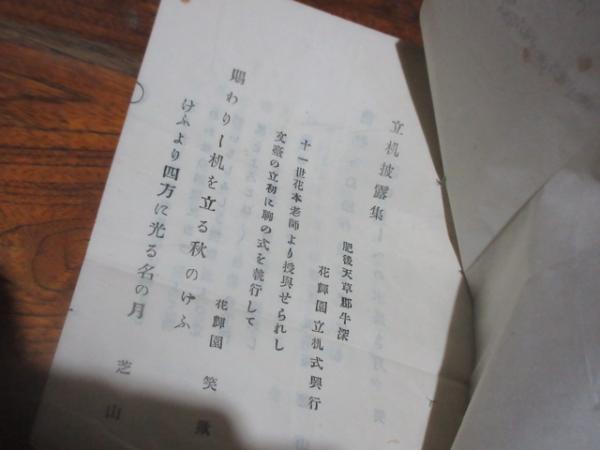 立机披露集
肥後天草郡牛深
花輝園立机式興行
十一世花本老師より授與せられし
文臺の立初に聊の式を執行して
花輝園 笑
賜わりし机を立る秋のけふ
けふより四方に光る名の月 芝山